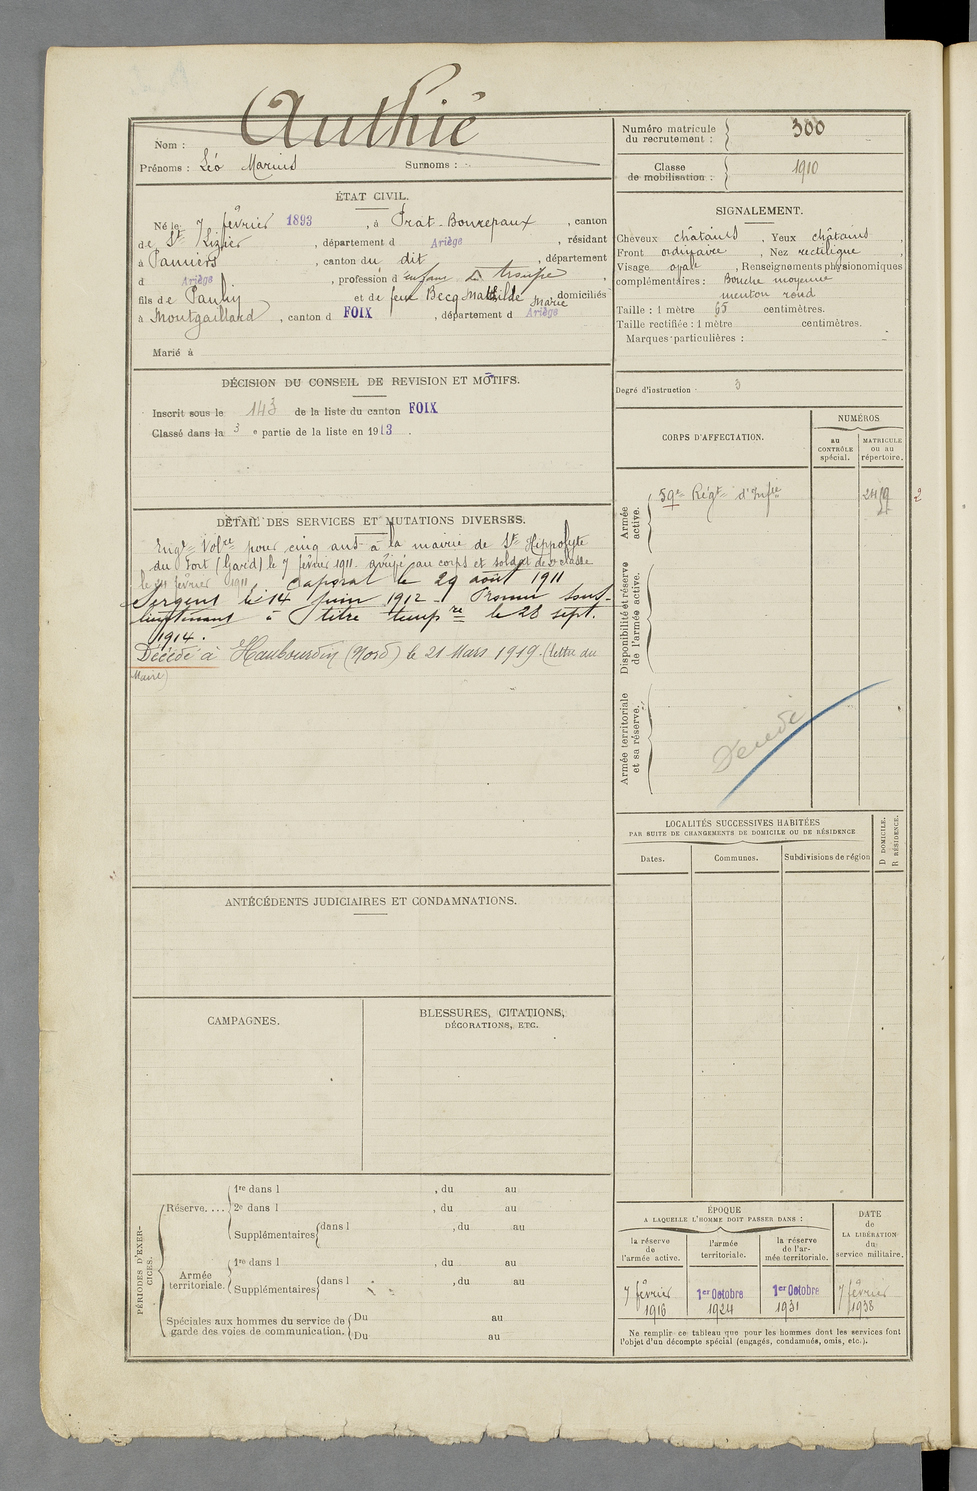 Authié
Nom :
Prénoms : Léo Marius Surnoms : -
Numéro matricule du recrutement : 300
Classe de mobilisation : 1910
ÉTAT CIVIL.
Né le 7 février 1893, à Prat-Bonrepaux, canton
de St Lizier, département d Ariège, résidant
à Pamiers, canton du dit, département
d Ariège, profession d enfant de troupe,
fils de Paulin et de feue Becq Mathilde Marie domiciliés
à Montgaillard, canton d FOIX, département d Ariège
Marié à
SIGNALEMENT.
Cheveux châtains, Yeux châtains,
Front ordinaire, Nez rectiligne,
Visage ovale, Renseignements physionomiques
complémentaires : Bouche moyenne
menton rond
Taille : 1 mètre 65 centimètres.
Taille rectifiée : 1 mètre centimètres.
Marques particulières : -
Degré d'instruction 3
DÉCISION DU CONSEIL DE REVISION ET MOTIFS.
Inscrit sous le 143 de la liste du canton FOIX
Classé dans la 3 e partie de la liste en 1913.
CORPS D'AFFECTATION.
NUMÉROS
au CONTRÔLE spécial.
MATRICULE ou au répertoire.
Armée active.
59e Régt d'Infie
2
Disponibilité et réserve de l'armée active.
Armée territoriale et sa réserve.
Décédé
DÉTAIL DES SERVICES ET MUTATIONS DIVERSES.
Engé Volre pour cinq ans à la mairie de St Hippolyte
du Fort (Gard) le 7 février 1911. arrivé au corps et soldat de 2e classe
le février 1911 Caporal le 29 août 1911
Sergent le 14 juin 1912. Promu sous-
lieutenant à titre tempre le 28 sept.
1914.
Décédé à Haubourdin (Nord) le 21 Mars 1919 (lettre du
Maire)
LOCALITÉS SUCCESSIVES HABITÉES
PAR SUITE DE CHANGEMENTS DE DOMICILE OU DE RÉSIDENCE
Dates.
Communes.
Subdivisions de région
D DOMICILE.
R RÉSIDENCE.
ANTÉCÉDENTS JUDICIAIRES ET CONDAMNATIONS.
CAMPAGNES.
BLESSURES, CITATIONS,
DÉCORATIONS, ETC.
PÉRIODES D'EXERCICES.
Réserve....
1re dans l , du au
2e dans l , du au
Supplémentaires dans l , du au
Armée territoriale.
1re dans l , du au
Supplémentaires dans l , du au
Spéciales aux hommes du service de garde des voies de communication.
Du au
Du au
ÉPOQUE
A LAQUELLE L'HOMME DOIT PASSER DANS :
la réserve de l'armée active.
l'armée territoriale.
la réserve de l'armée territoriale.
DATE de LA LIBÉRATION du service militaire.
7 février 1916
1er Octobre 1924
1er Octobre 1931
7 février 1938
Ne remplir ce tableau que pour les hommes dont les services font
l'objet d'un décompte spécial (engagés, condamnés, omis, etc.).